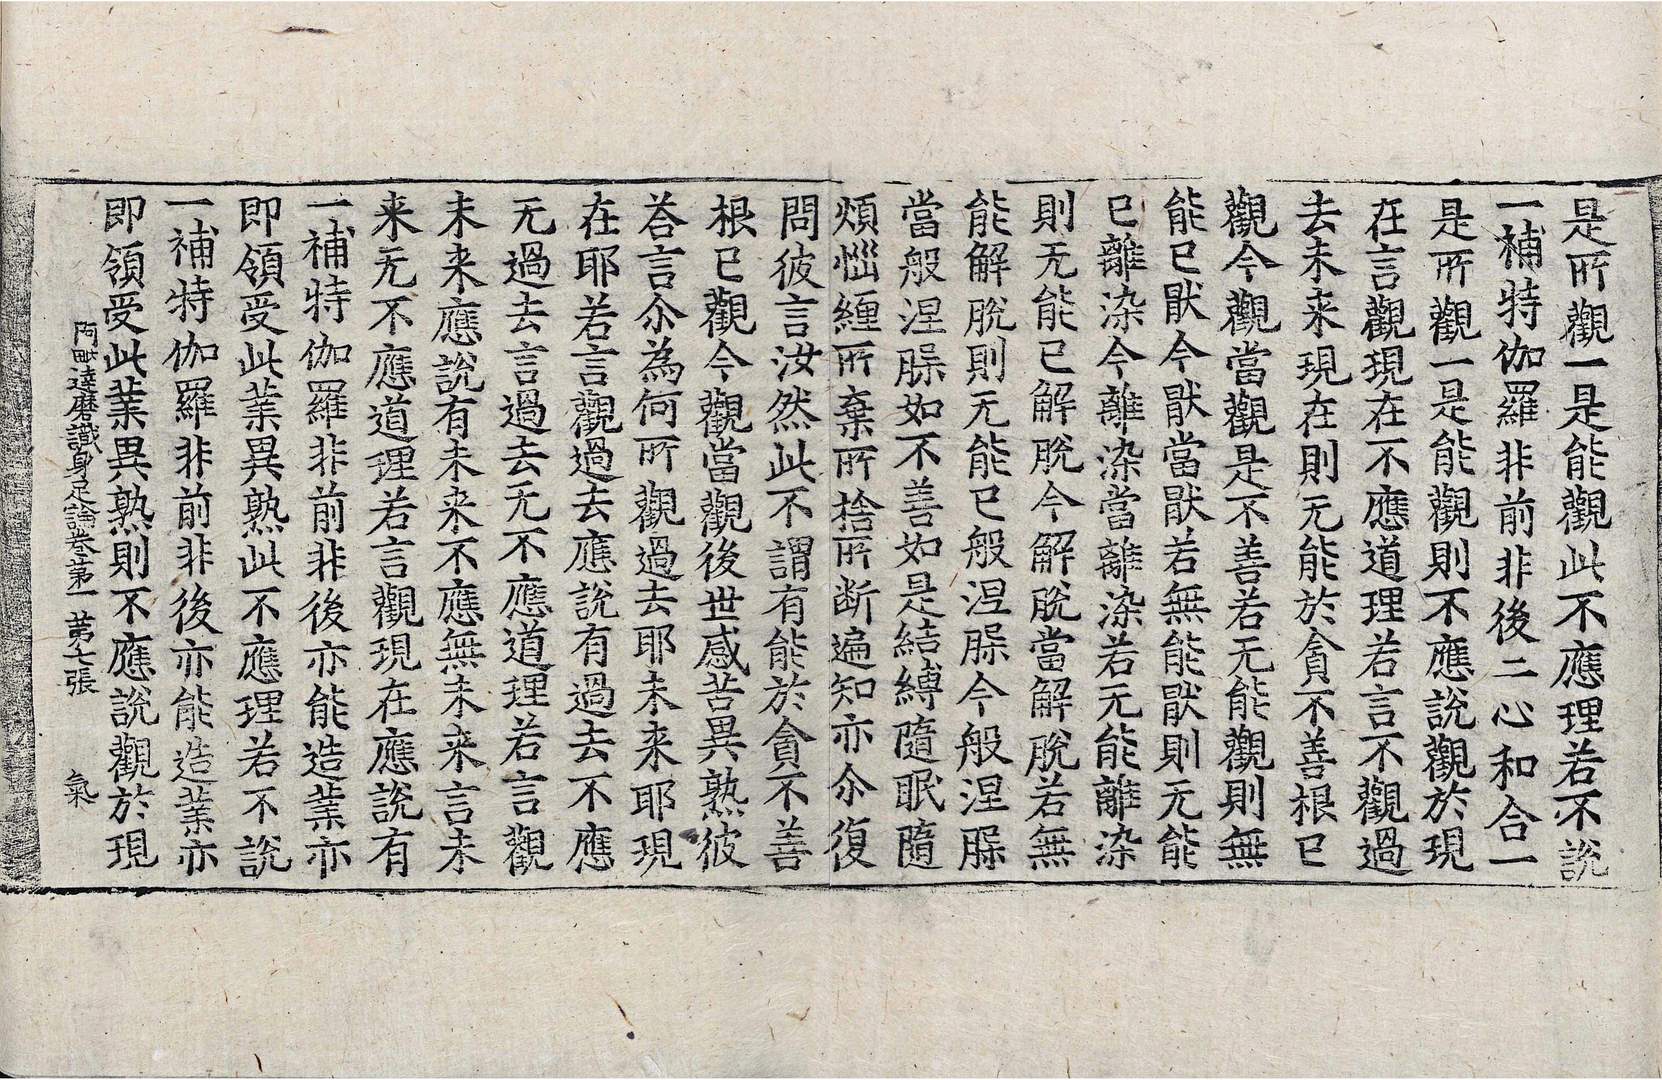 是所觀一是能觀此不應理若不說
一補特伽羅非前非後二心和合一
是所觀一是能觀則不應說觀於現
在言觀現在不應道理若言不觀過
去未来現在則无能於貪不善根已
觀今觀當觀是不善若无能觀則無
能已猒今猒當猒若無能猒則无能
已離染今離染當離染若无能離染
則无能已解脫今解脫當解脫若無
能解脫則无能已般涅槃今般涅槃
當般涅槃如不善如是結縛隨眠隨
煩惱纏所棄所捨所断遍知亦尒復
問彼言汝然此不謂有能於貪不善
根已觀今觀當觀後世感苦異熟彼
荅言尒為何所觀過去耶未来耶現
在耶若言觀過去應說有過去不應
无過去言過去无不應道理若言觀
未来應說有未来不應無未来言未
来无不應道理若言觀現在應說有
一補特伽羅非前非後亦能造業亦
即領受此業異熟此不應理若不說
一補特伽羅非前非後亦能造業亦
即領受此業異熟則不應說觀於現
阿毗達磨識身足論卷第一 第七張 氣